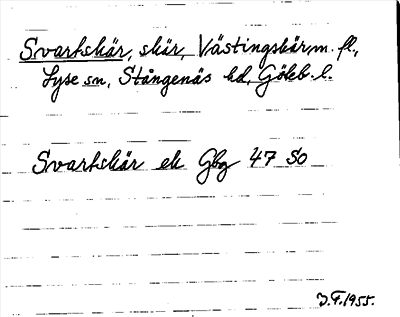 Svartskär, skär, Västingskär, m. fl.,
Lyse sn, Stångenäs hd, Göteb. l.
Svartskär ek Gbg 47 SO
J.F. 1955.